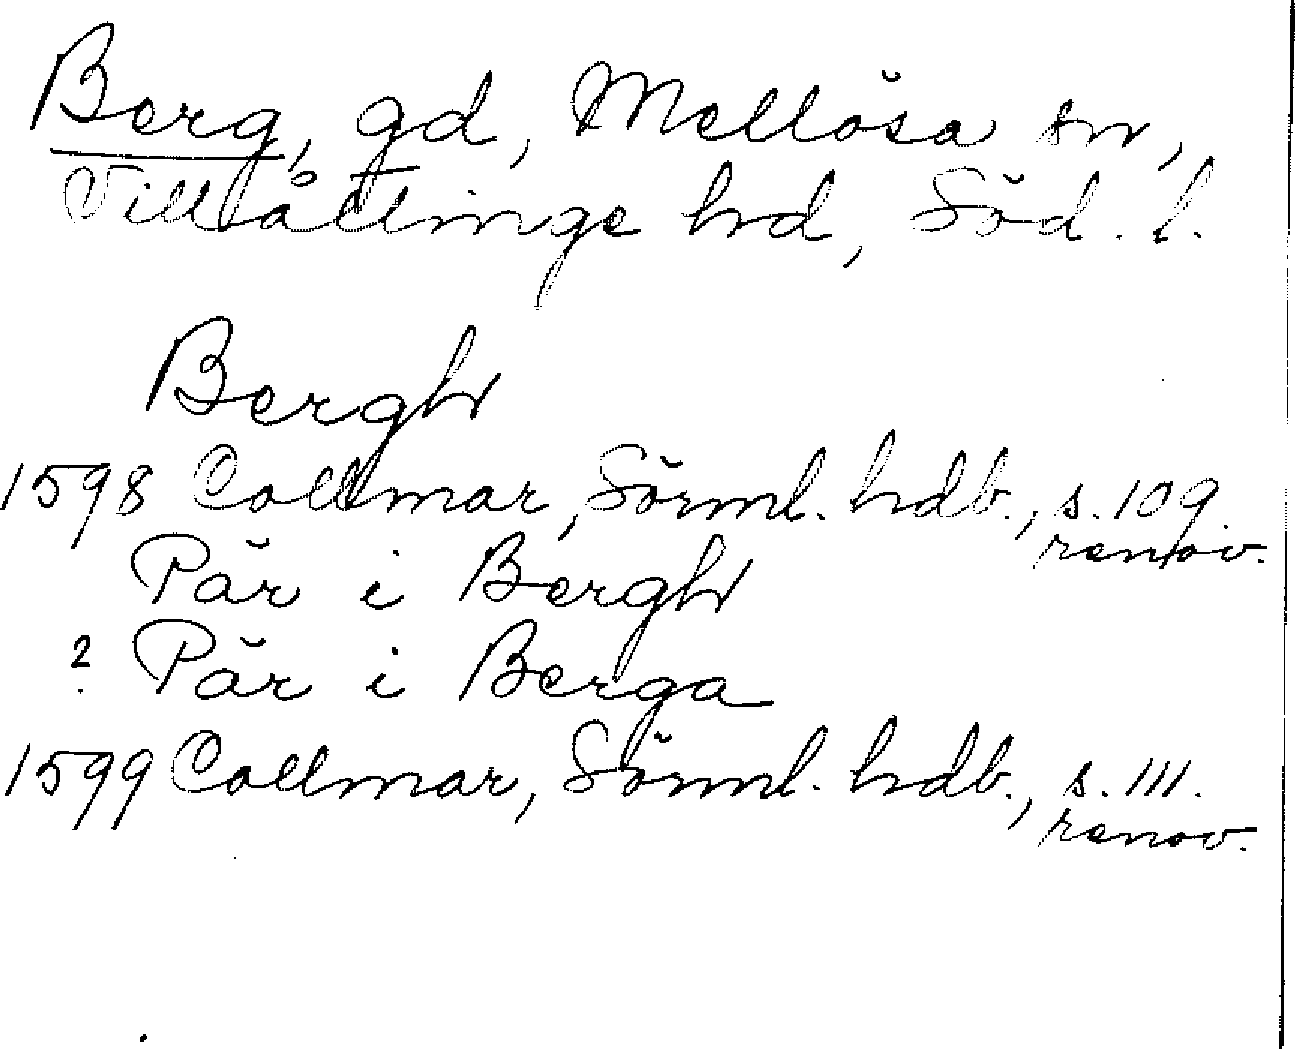 Berg, gd, Mellösa sn,
Villåttinge hd, Söd. l.
Bergh
1598 Collmar, Sörml. hdb., s. 109.
renov.
Pär i Bergh
? Pär i Berga
1599 Collmar, Sörml. hdb., s. 111.
renov.